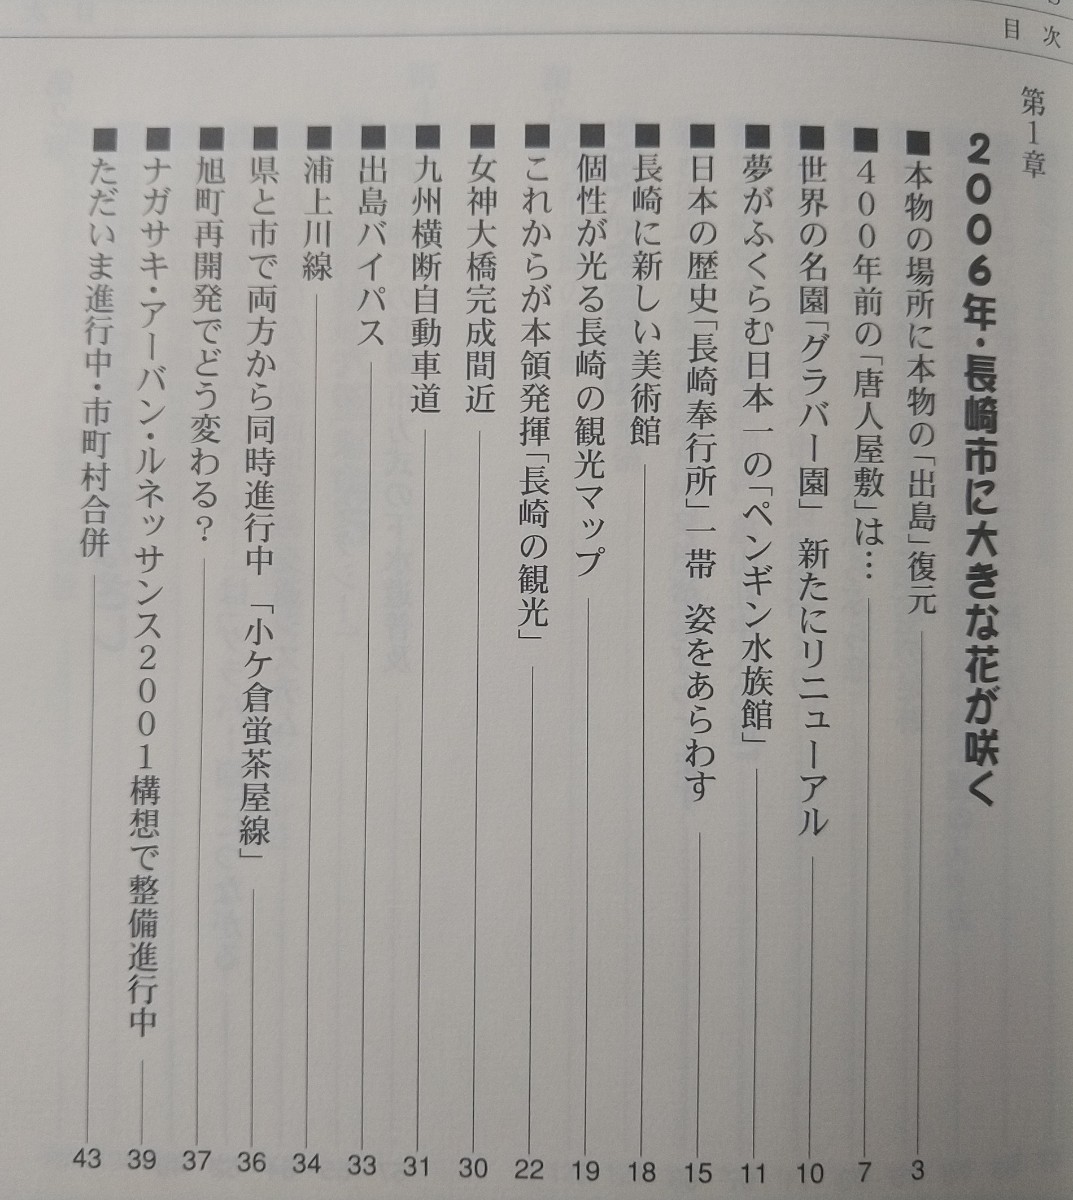 目次
第1章
2006年・長崎市に大きな花が咲く
■本物の場所に本物の「出島」復元 3
■400年前の「唐人屋敷」は… 7
■世界の名園「グラバー園」 新たにリニューアル 10
■夢がふくらむ日本一の「ペンギン水族館」 11
■日本の歴史「長崎奉行所」一帯 姿をあらわす 15
■長崎に新しい美術館 18
■個性が光る長崎の観光マップ 19
■これからが本領発揮「長崎の観光」 22
■女神大橋完成間近 30
■九州横断自動車道 31
■出島バイパス 33
■浦上川線 34
■県と市で両方から同時進行中 「小ケ倉蛍茶屋線」 36
■旭町再開発でどう変わる? 37
■ナガサキ・アーバン・ルネッサンス2001構想で整備進行中 39
■ただいま進行中・市町村合併 43